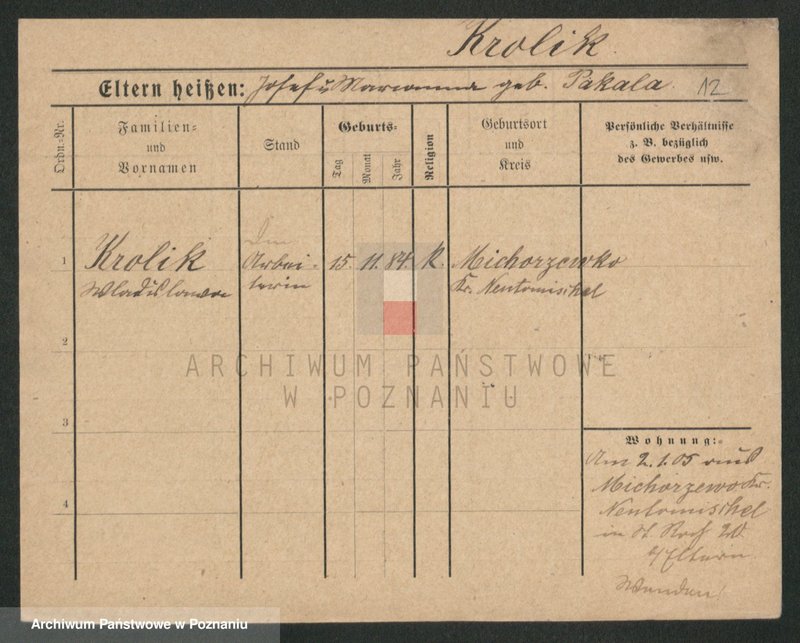 Krolik.
Eltern heißen: Josef u Marianna geb. Pakala. 12
Ordn.-Nr.
Familien-
und
Vornamen
Stand
Geburts-
Tag
Monat
Jahr
Religion
Geburtsort
und
Kreis
Persönliche Verhältnisse
z. B. bezüglich
des Gewerbes usw.
1
Krolik
Wladislawa
Arbei-
terin
15. 11. 84. K.
Michorzewko
Kr. Neutomischel
2
3
4
ARCHIWUM PAŃSTWOWE
W POZNANIU
Wohnung:
Am 2.1.05 aus
Michorzewo Kr.
Neutomischel
in St. Roch 20.
b/ Eltern
Wenden!
Archiwum Państwowe w Poznaniu